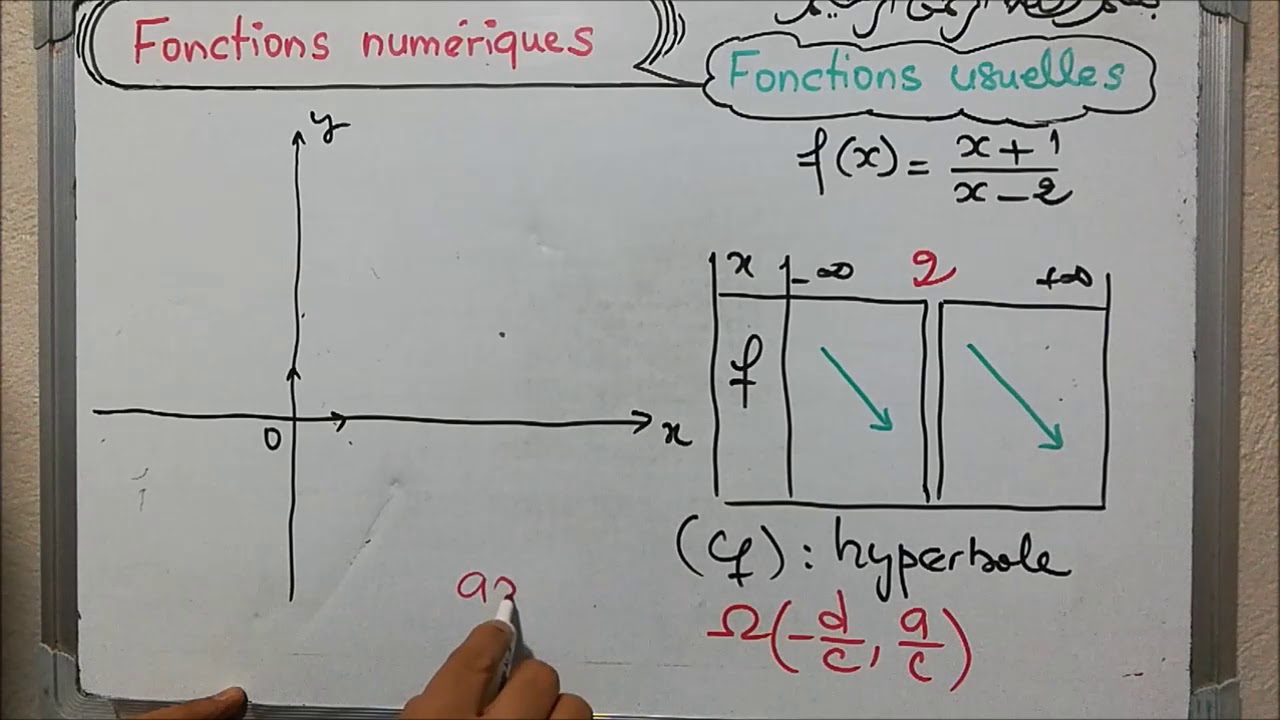 Fonctions numériques
Fonctions usuelles
f(x) = \frac{x+1}{x-2}
y
x
0
x -∞ 2 +∞
f
(Cf) : hyperbole
Ω(-\frac{d}{c}, \frac{a}{c})
a